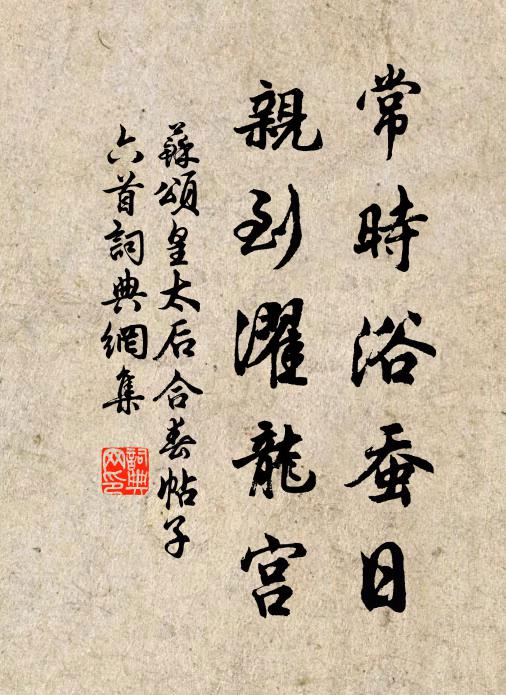 常時浴蚕日
親到濯龍宮
蘇頌皇太后合春帖子
六首詞典網集
詞典网印